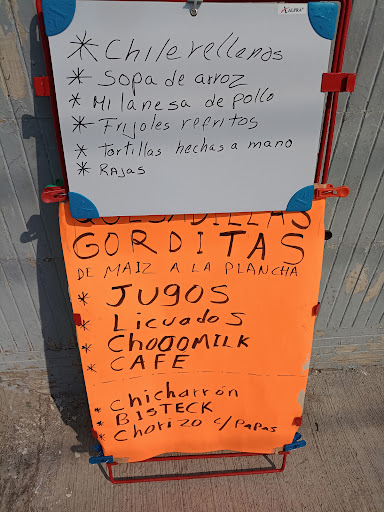 ALPRA
* Chile rellenos
* Sopa de arroz
* Milanesa de pollo
* Frijoles refritos
* Tortillas hechas a mano
* RAJAS
QUESADILLAS
GORDITAS
DE MAIZ A LA PLANCHA
* JUGOS
* LicuadoS
* CHOOOMILK
* CAFE
* chicharrón
* BISTECK
* chorizo c/papas